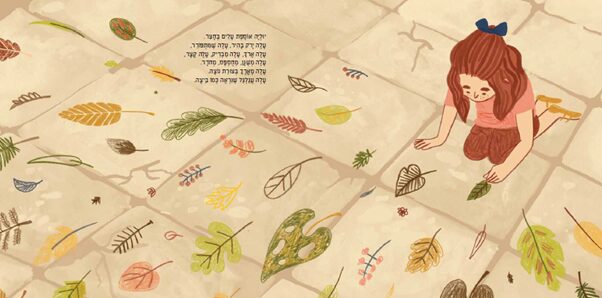 יוּלְיָה אוֹסֶפֶת עָלִים בֶּחָצֵר.
עָלֶה יָרֹק בָּהִיר, עָלֶה שֶׁמִּתְפּוֹרֵר,
עָלֶה אָרֹךְ, עָלֶה מַבְרִיק, עָלֶה קָצָר,
עָלֶה מְשֻׁנָּן, מְחֻסְפָּס, מְחֻדָּד.
עָלֶה מָאֳרָךְ בְּצוּרַת נוֹצָה.
עָלֶה עֲגַלְגַּל שֶׁנִּרְאֶה כְּמוֹ בֵּיצָה.